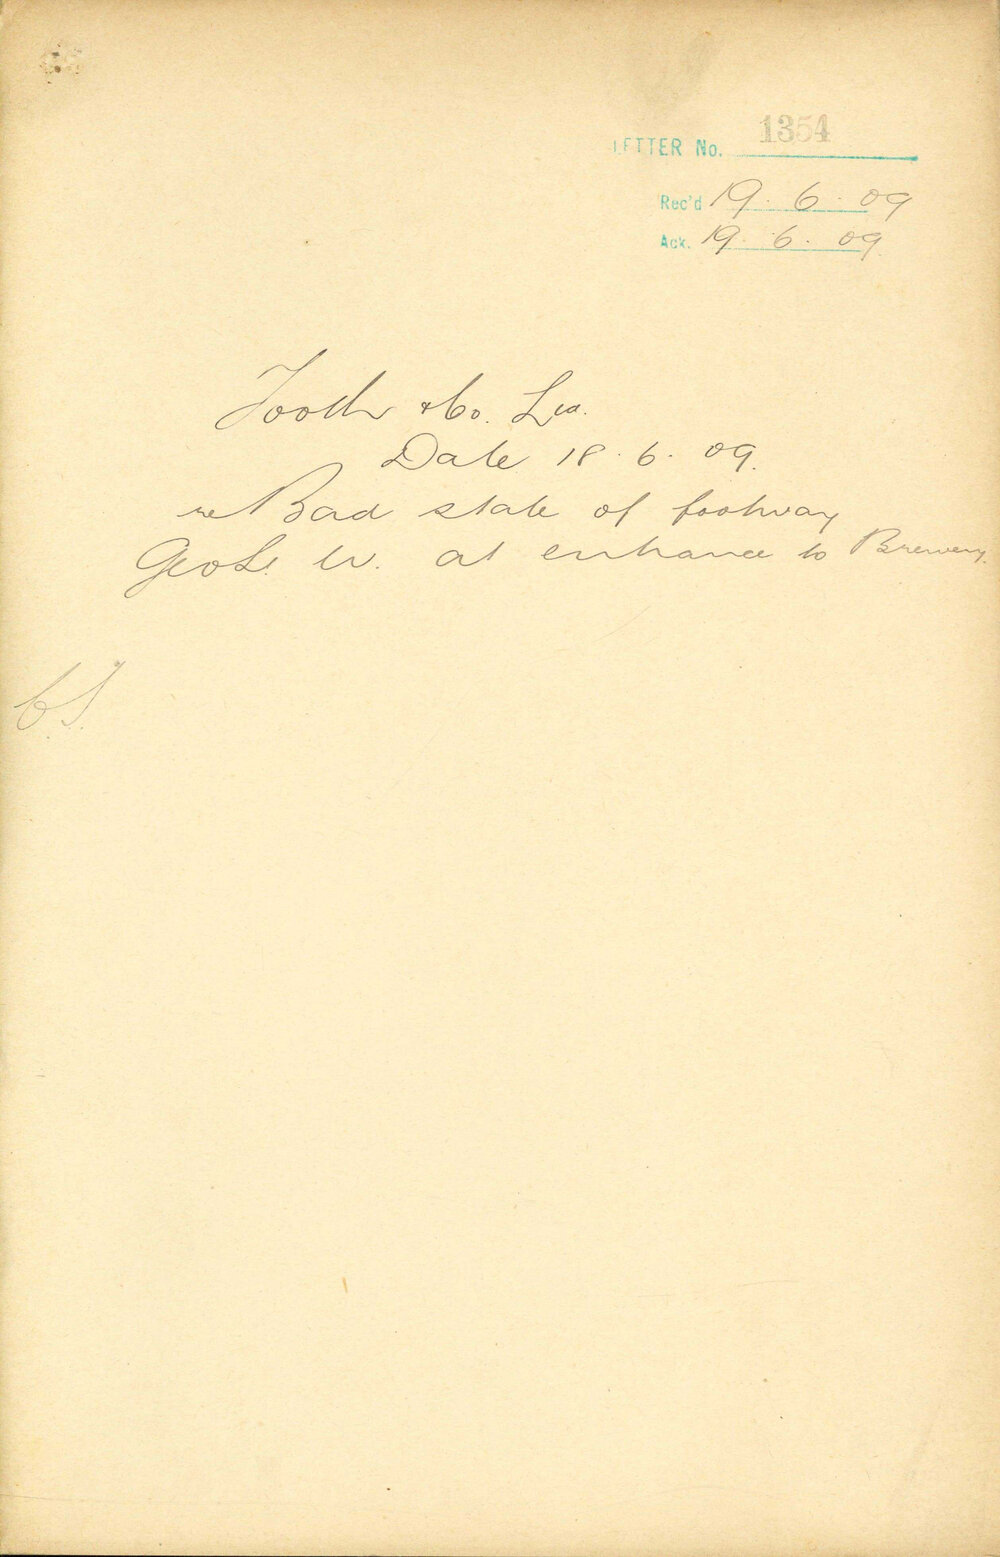 LETTER No. 1354
Rec'd 19.6.09
Ack. 19.6.09
Tooth & Co. Ltd.
Date 18.6.09.
re Bad state of footway
Geo St. W. at entrance to Brewery.